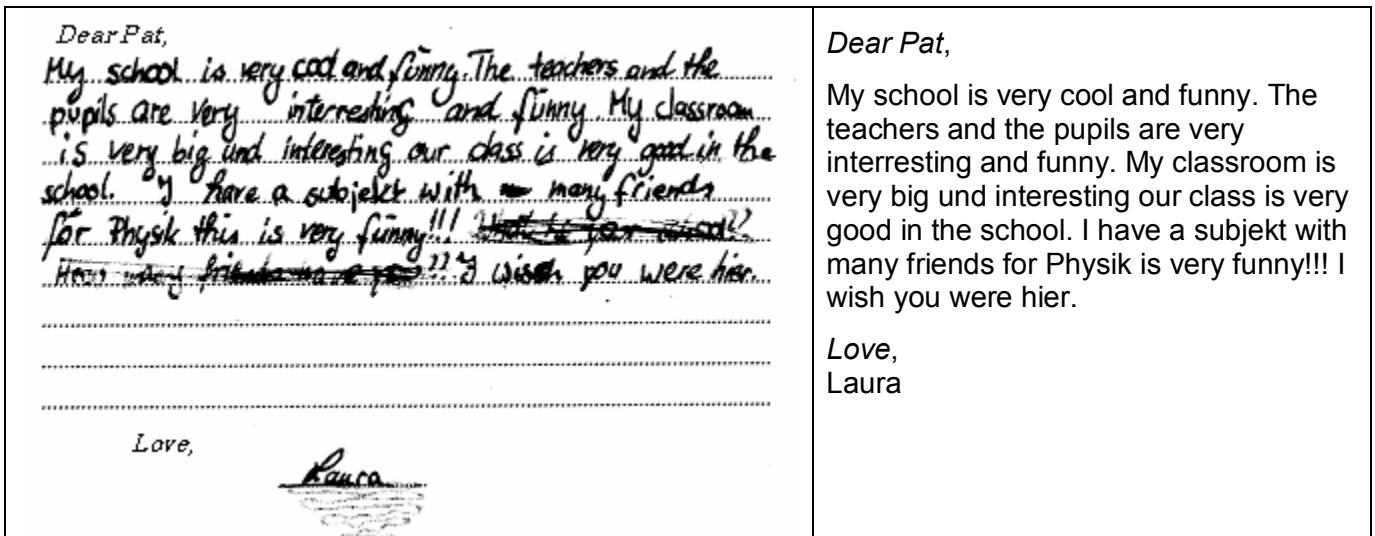 Dear Pat,
My school is very cool and funny. The teachers and the
pupils are very interresting and funny. My classroom
is very big und interesting our class is very good in the
school. I have a subjekt with many friends
for Physik this is very funny!!! ??
How many friends ?? I wish you were hier.
Love,
Laura
Dear Pat,
My school is very cool and funny. The
teachers and the pupils are very
interresting and funny. My classroom is
very big und interesting our class is very
good in the school. I have a subjekt with
many friends for Physik is very funny!!! I
wish you were hier.
Love,
Laura